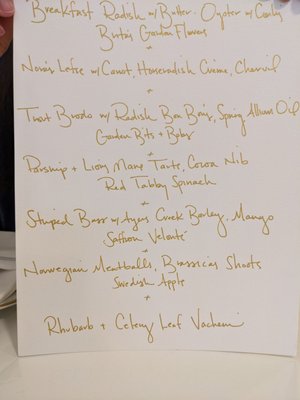 Breakfast Radish w/ Butter. Oyster w/
Garden Flowers
+
Nonis Lefse w/ Carrot, Horseradish Crème, Chervil
+
Trout Brodo w/ Radish Bon Bons, Spring Allium Oil
Garden Bits + Bobs
+
Parsnip + Lions Mane Tarte, Cocoa Nib
Red Tabby Spinach
+
Striped Bass w/ Ayers Creek Barley, Mango
Saffron Velouté
+
Norwegian Meatballs, Brassicas Shoots
Swedish Apple
+
Rhubarb + Celery Leaf Vacherin